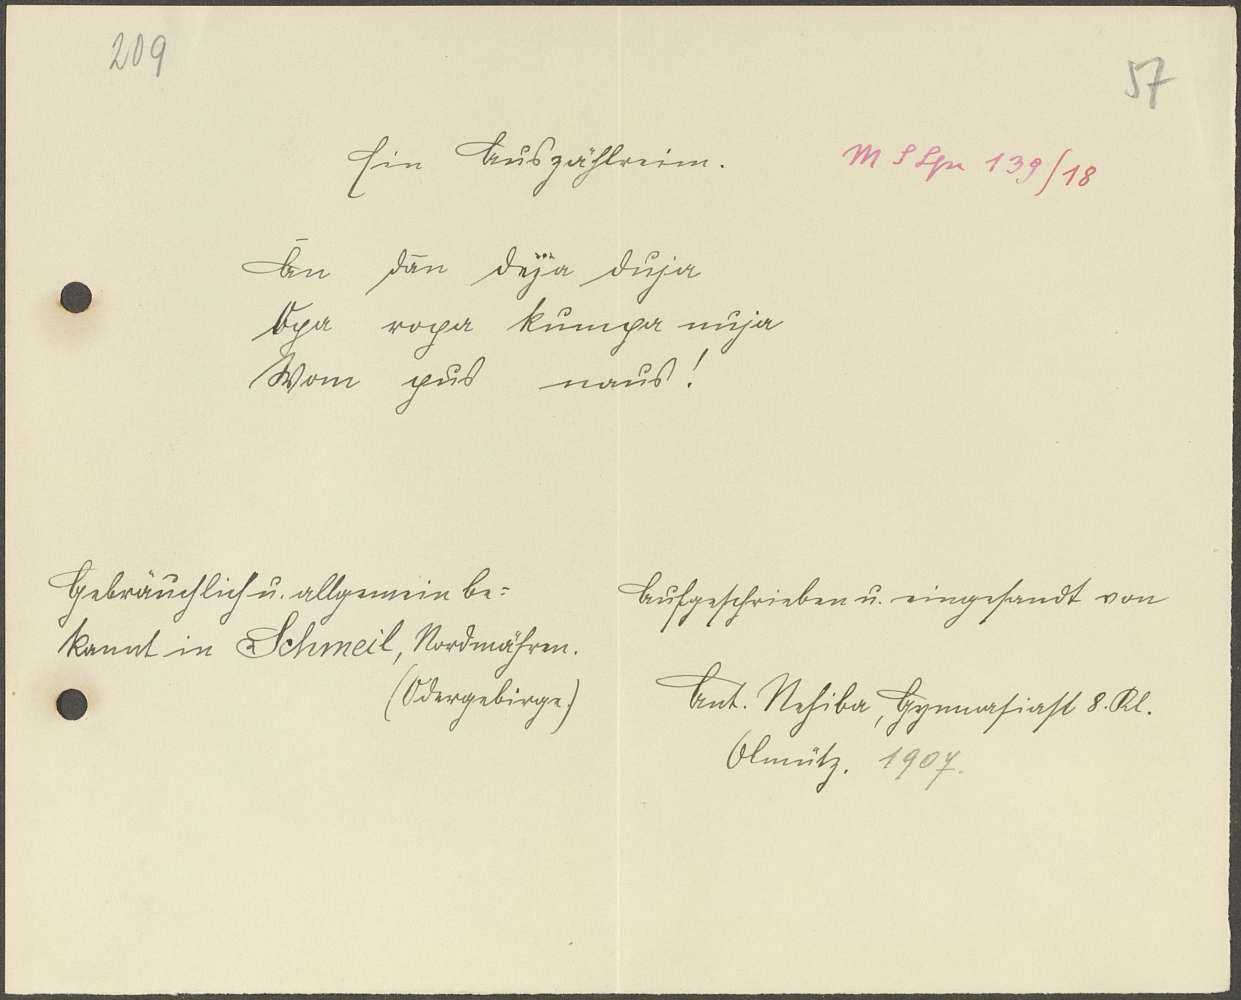 209
57
Ein Auszählreim.
M S Spr 139/18
Ān dān deja duja
Opa ropa kumpa nuja
Wom pus naus!
Gebräuchlich u. allgemein be-
kannt in Schmeil, Nordmähren.
(Odergebirge.)
Aufgeschrieben u. eingesandt von
Ant. Nehiba, Gymnasiast 8. Kl.
Olmütz. 1907.